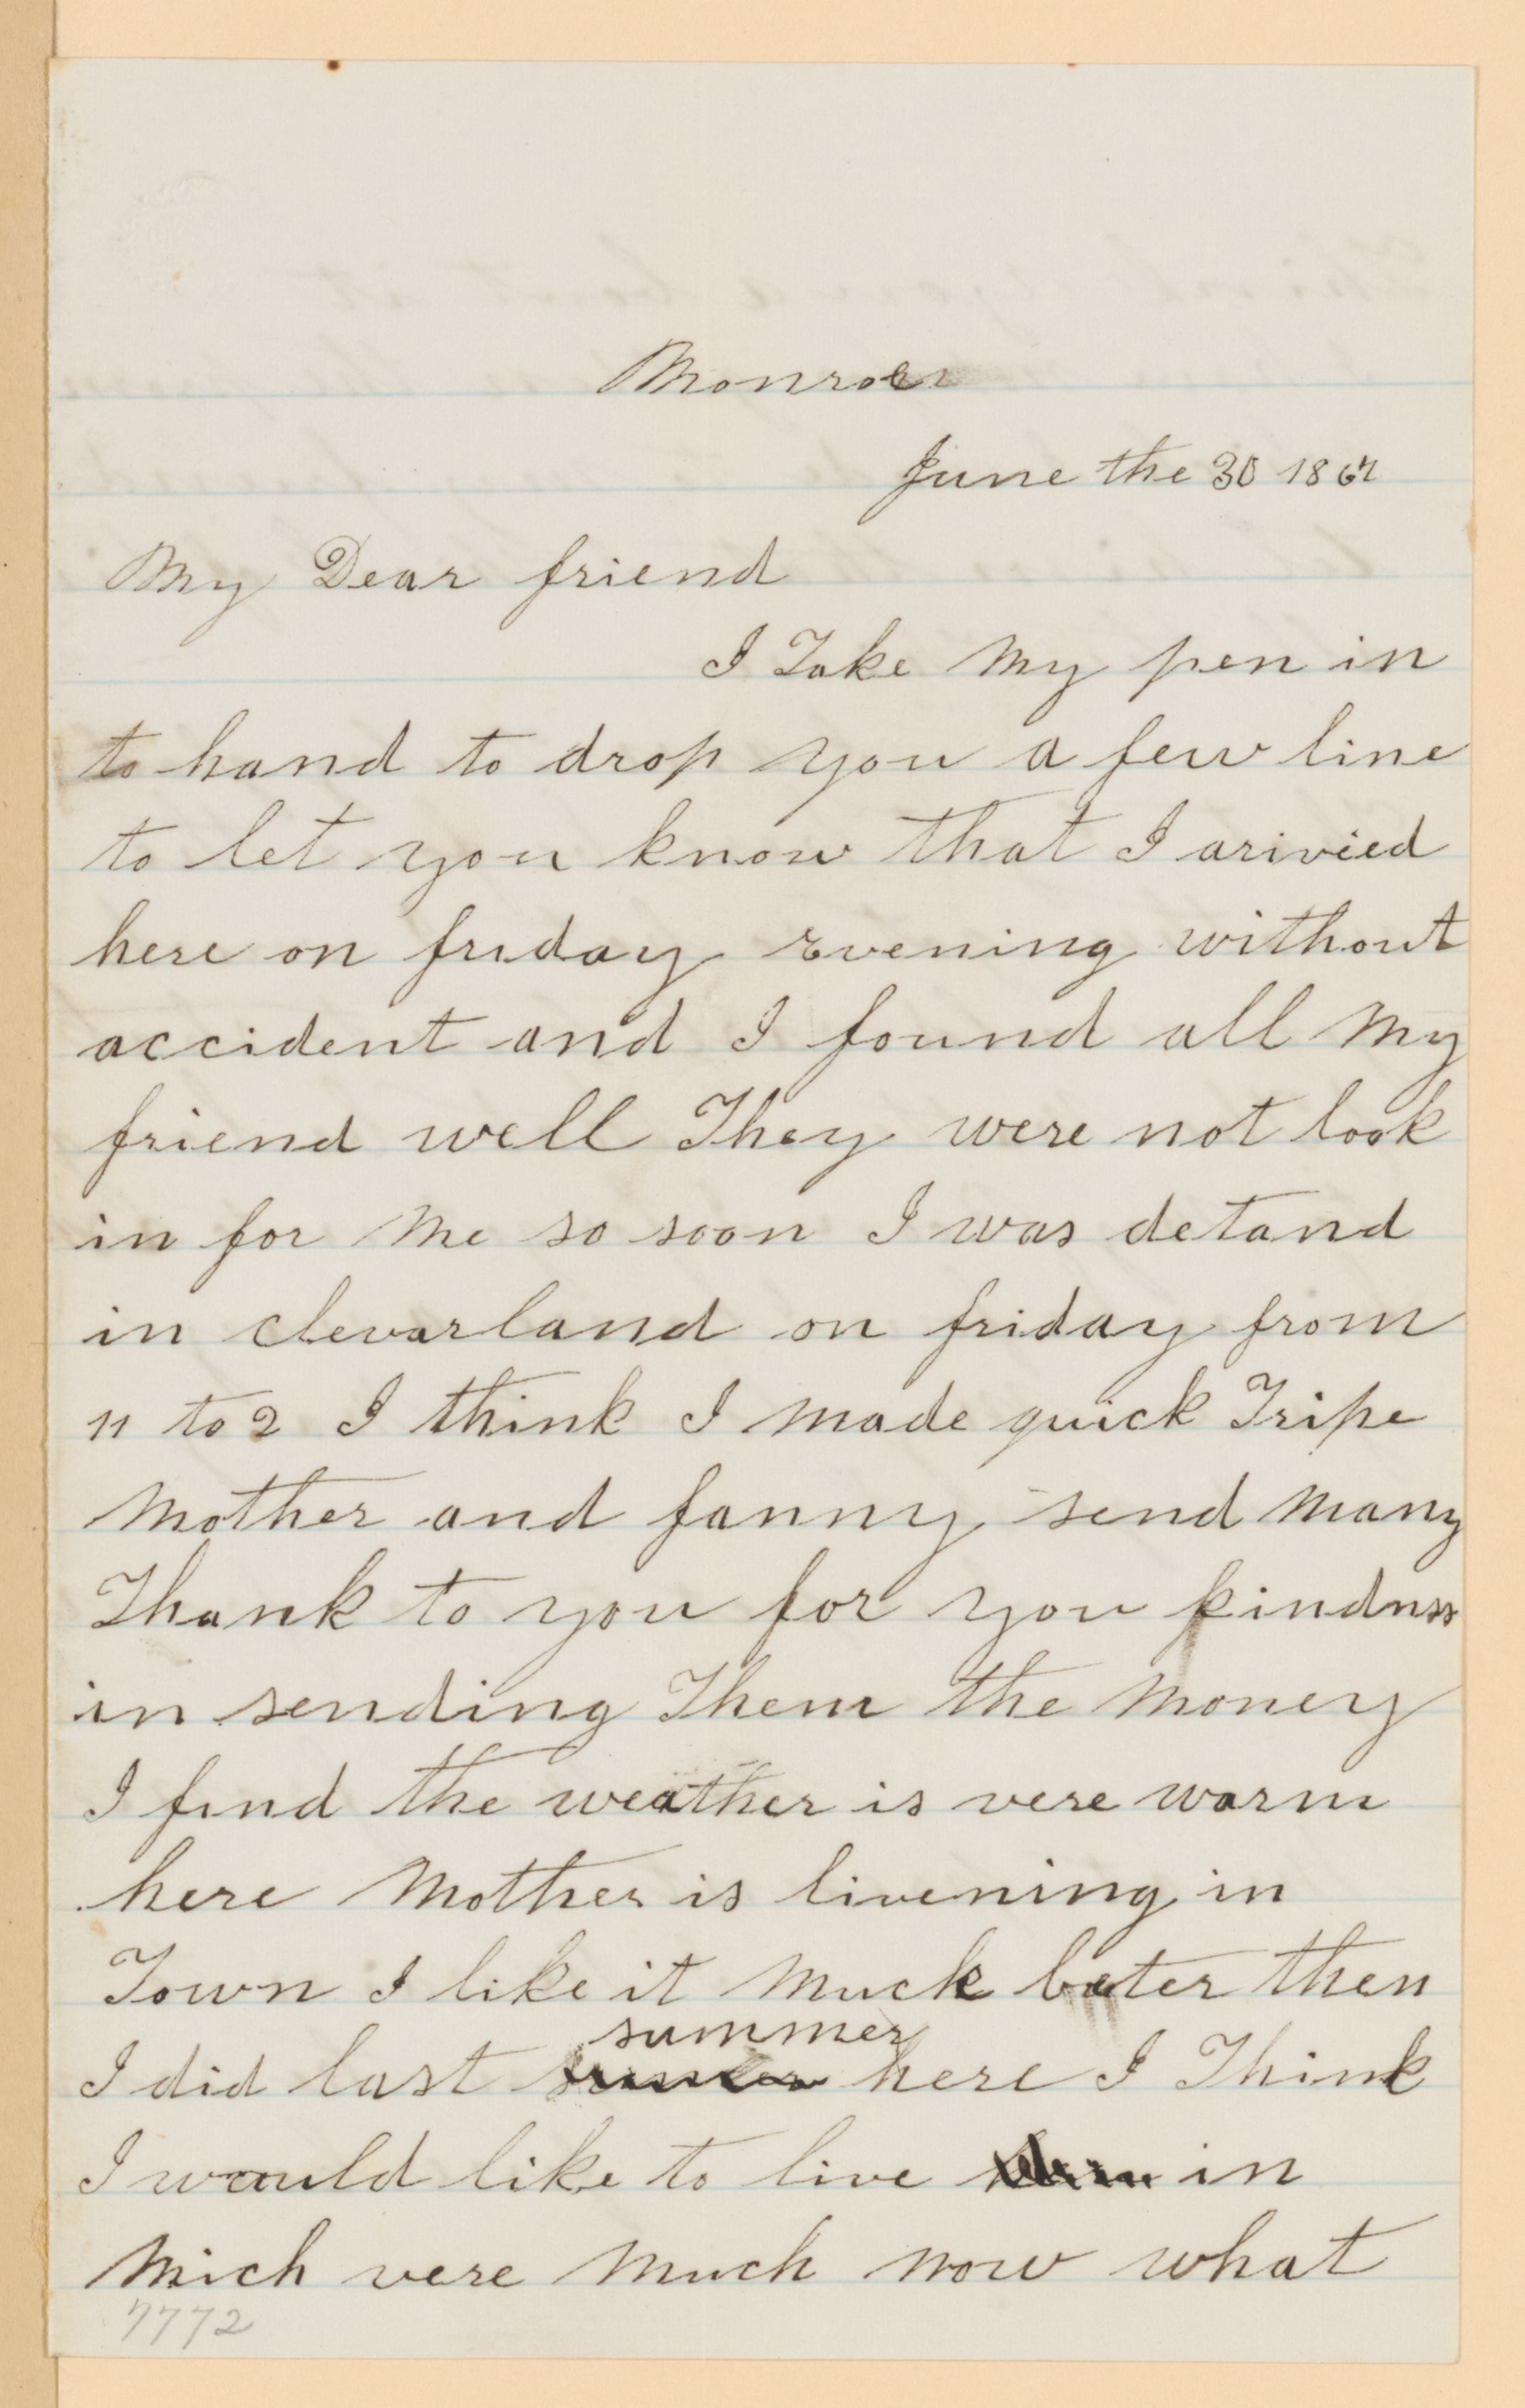 Monroe
June the 30 1867
My Dear friend
I Take My pen in
to hand to drop you a few line
to let you know that I arivied
here on friday Evening without
accident and I found all My
friend well They were not look
in for Me so soon I was detand
in clevarland on friday from
11 to 2 I think I made quick Tripe
Mother and fanny send Many
Thank to you for you kindnss
in sending Them the Money
I find the weather is vere warm
here Mother is livening in
Town I like it Much beter then
summer
I did last here I Think
I would like to live in
Mich vere Much now what
7772